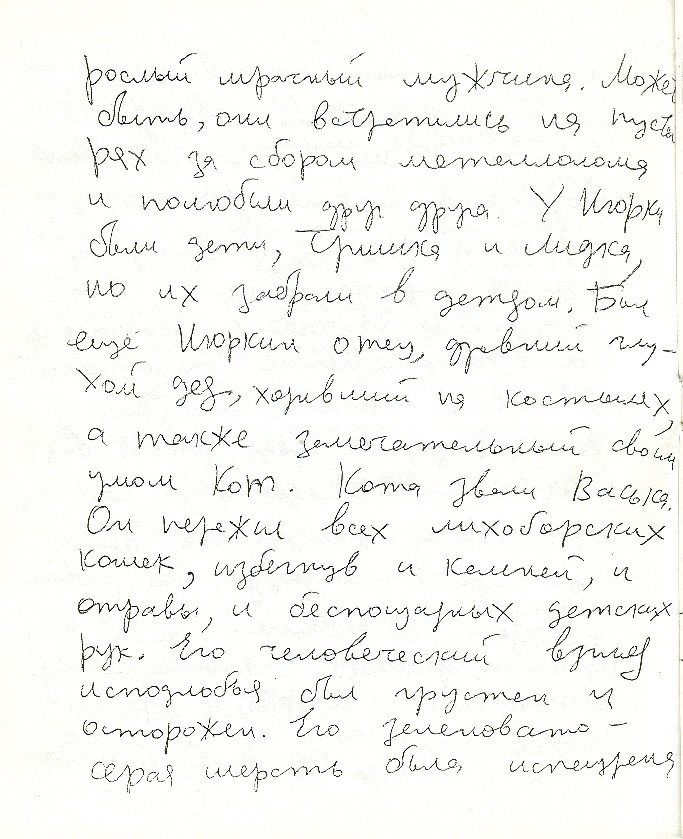 рослый мрачный мужчина. Может
быть, они встретились на пусты
рях за сбором металлолома
и полюбили друг друга. У Игорка
были дети, Гришка и Лидка,
но их забрали в детдом. Был
ещё Игоркин отец, древний глу-
хой дед, ходивший на костылях,
а также замечательный своим
умом Кот. Кота звали Васька.
Он пережил всех лихоборских
кошек, избегнув и камней, и
отравы, и беспощадных детских
рук. Его человеческий взгляд
исподлобья был грустен и
осторожен. Его зеленовато-
серая шерсть была испещрена